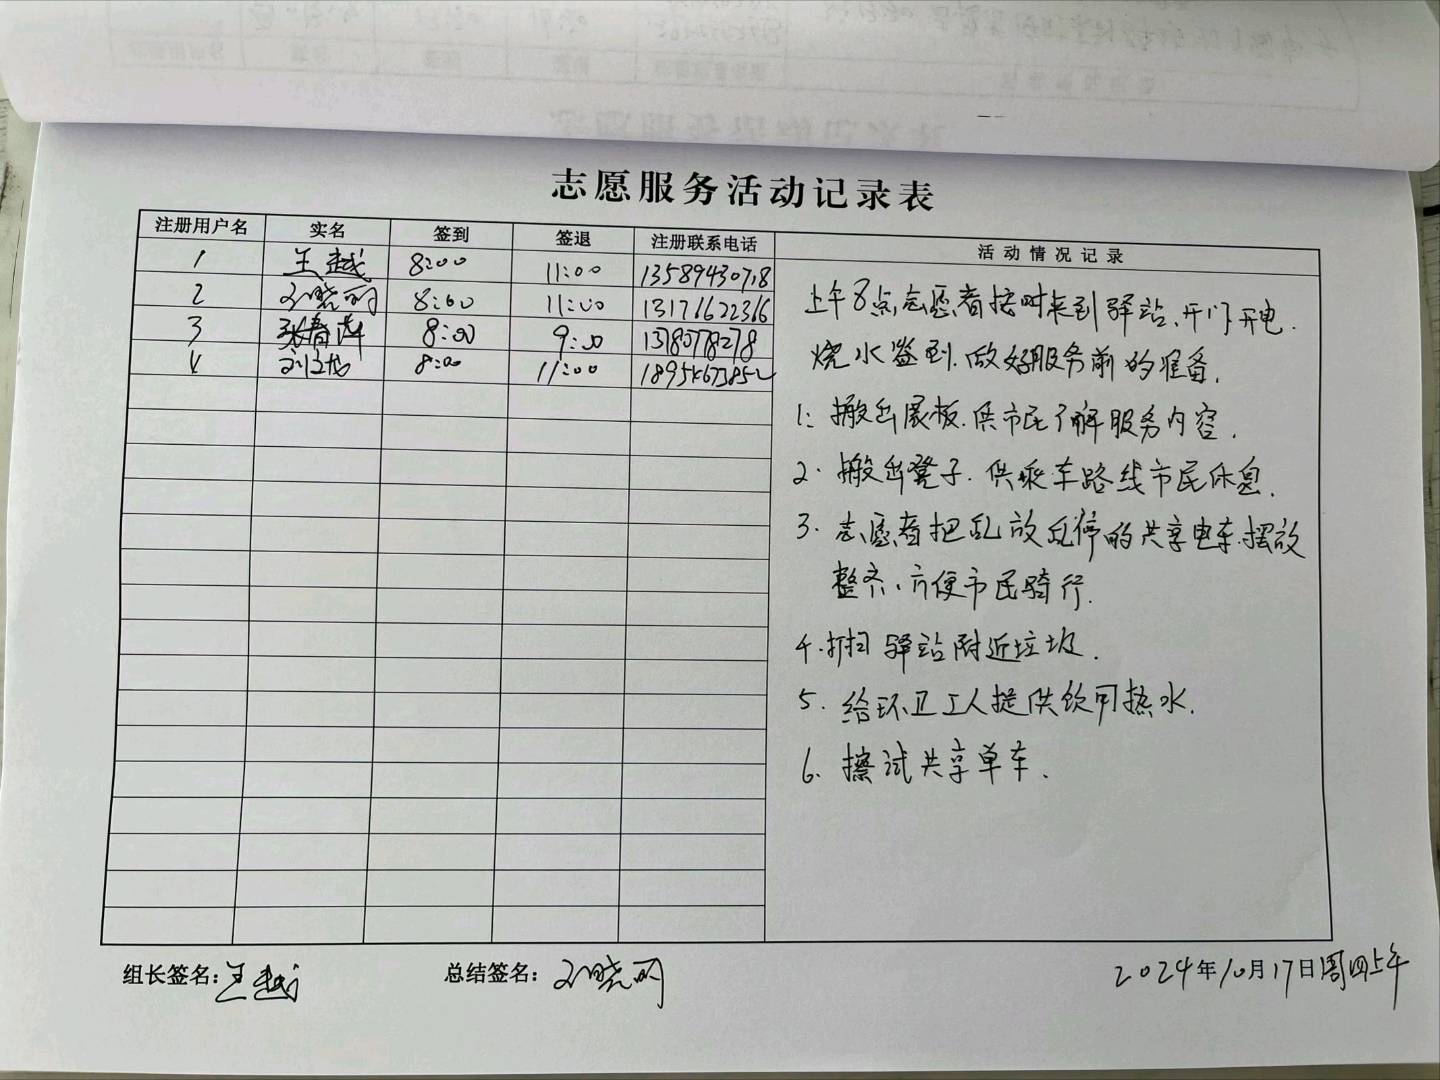 志愿服务活动记录表
注册用户名 实名 签到 签退 注册联系电话 活动情况记录
1 王越 8:00 11:00 13589430718
2 孙晓丽 8:00 11:00 13171622366
3 张春萍 8:00 9:00
4 8:00 11:00
上午8点志愿者按时来到驿站、开门开电.
烧水签到.做好服务前的准备.
1: 搬出展板.供市民了解服务内容.
2. 搬出凳子.供乘车路线市民休息.
3. 志愿者把乱放乱停的共享电车.摆放
整齐、方便市民骑行.
4.打扫驿站附近垃圾.
5. 给环卫工人提供饮用热水.
6. 擦试共享单车.
组长签名:王越 总结签名:孙晓丽 2024年10月17日周四上午